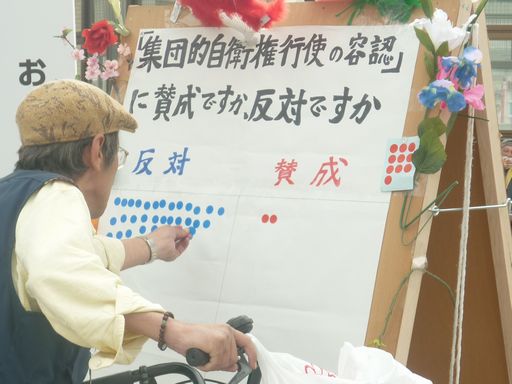 「集団的自衛権行使の容認」
に賛成ですか、反対ですか
反対
賛成
お